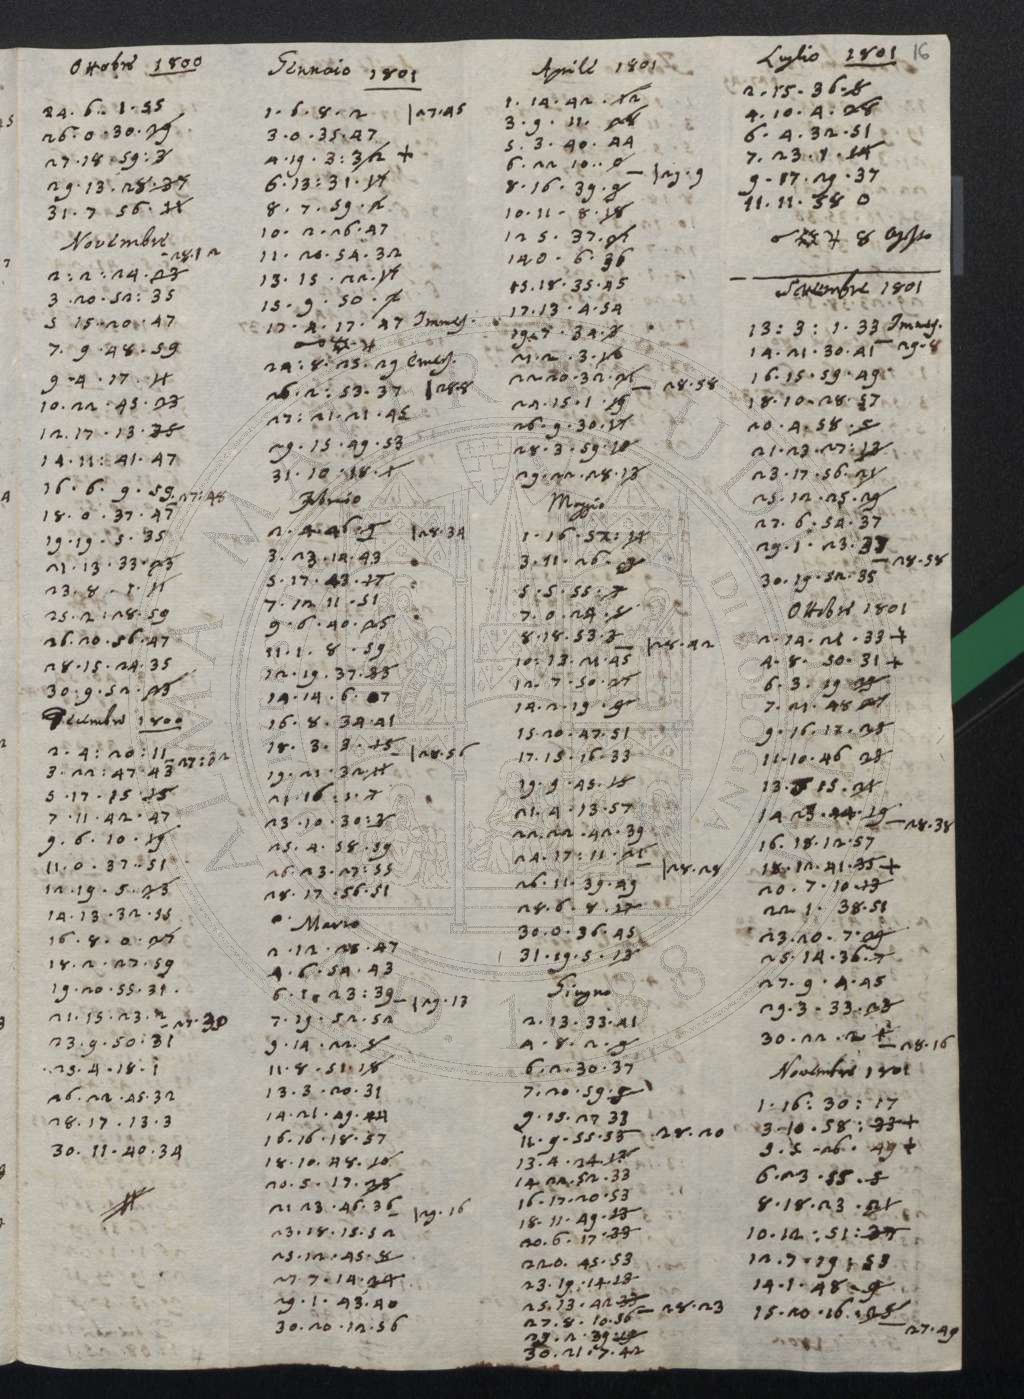 16
Ottobre 1800
24. 6. 1. 55
26. 0. 30. 19
27. 18. 59: 3
29. 13. 28. 37
31. 7. 56. 11
Novembre
28.12
2: 2: 24. 23
3. 20. 52: 35
5 15. 20. 47
7. 9. 48. 59
9. 4. 17. 11
10. 22. 45. 23
12. 17. 13. 35
14. 11: 41. 47
16. 6. 9. 59
27:48
18. 0. 37. 47
19. 19. 5. 35
21. 13. 33. 23
23. 8. 1. 11
25. 2. 28. 59
26. 20. 56. 47
28. 15. 24. 35
30. 9. 52. 23
Decembre 1800
2. 4: 20: 11
27:32
3. 22: 47. 43
5. 17. 15. 15
7. 11. 42. 47
9. 6. 10. 19
11. 0. 37. 51
12. 19. 5. 23
14. 13. 32. 55
16. 8. 0. 27
18. 2. 27. 59
19. 20. 55. 31
21. 15. 23. 2
27.30
23. 9. 50: 31
25. 4. 18. 1
26. 22. 45. 32
28. 17. 13. 3
30. 11. 40. 34
Gennaio 1801
1. 6. 8. 2 27.45
3. 0. 35. 47
4. 19. 3: 32 +
6. 13: 31. 17
8. 7. 59. 2
10. 2. 26. 47
11. 20. 54. 32
13. 15. 22. 17
15. 9. 50. 2
17. 4. 17. 47 Immes.
24: 8. 25. 29 Emes.
26. 2: 53. 37 28.8
27: 21. 21. 45
29. 15. 49. 53
31. 10. 18. 1
Febraio
2. 4. 46. 9 28.34
3. 23. 14. 43
5. 17. 43. 17
7. 12. 11. 51
9. 6. 40. 25
11. 1. 8. 59
12. 19. 37. 33
14. 14. 6. 07
16. 8. 34. 41
18. 3. 3. 15
28.56
19. 21. 32. 11
21. 16: 1. 7
23. 10. 30: 3
25. 4. 58. 59
26. 23. 27: 55
28. 17. 56. 51
Marzo
2. 12. 28. 47
4. 6. 54. 43
6. 1. 23: 39
29.13
7. 19. 52. 52
9. 14. 22. 5
11. 8. 51. 18
13. 3. 20. 31
14. 21. 49. 44
16. 16. 18. 57
18. 10. 48. 10
20. 5. 17. 23
21 23. 46. 36
29.16
23. 18. 15. 52
25. 12. 45. 8
27. 7. 14. 24
29. 1. 43. 40
30. 20. 12. 56
Aprile 1801
1. 14. 42. 12
3. 9. 11. 28
5. 3. 40. 44
6. 22. 10. 0
29.9
8. 16. 39. 9
10. 11. 8. 18
12 5. 37. 27
14 0. 6. 36
15. 18. 35. 45
17. 13. 4. 54
19. 7. 34. 3
21. 2. 3. 16
22. 20. 32. 21
28.58
24. 15. 1. 19
26. 9. 30. 17
28. 3. 59. 10
29. 22. 28. 13
Maggio
1. 16. 57: 11
3. 11. 26. 9
5. 5. 55. 7
7. 0. 24. 5
8. 18. 53. 3
28.42
10: 13. 21. 45
12. 7. 50. 27
14. 2. 19. 9
15. 20. 47. 51
17. 15. 16. 33
19. 9. 45. 15
21. 4. 13. 57
22. 22. 42. 39
24. 17: 11. 21
28.28
26. 11. 39. 49
28. 6. 8. 17
30. 0. 36. 45
31. 19. 5. 13
Giugno
2. 13. 33. 41
4. 8. 2. 9
6. 2. 30. 37
7. 20. 59. 5
9. 15. 27 33
11. 9. 55. 53
28.20
13. 4. 24. 13
14. 22. 52. 33
16. 17. 20. 53
18. 11. 49. 13
20. 6. 17. 33
22 0. 45. 53
23. 19. 14. 13
25. 13. 42 33
28.23
27. 8. 10. 56
29. 2. 39. 19
30. 21. 7. 42
Luglio 1801
2. 15. 36. 8
4. 10. 4. 28
6. 4. 32. 51
7. 23. 1. 14
9. 17. 29. 37
11. 11. 58 0
8 Agosto
Settembre 1801
13: 3: 1. 33 Immes.
14. 21. 30. 41
29.8
16. 15. 59. 49
18. 10. 28. 57
20. 4. 58. 5
21. 23. 27: 13
23. 17. 56. 21
25. 12. 25. 29
27. 6. 54. 37
29. 1. 23. 37
28.58
30. 19. 52. 35
Ottobre 1801
2. 14. 21. 33 +
4. 8. 50. 31 +
6. 3. 19 29
7. 21. 48 27
9. 16. 17. 25
11. 10. 46 23
13. 5 15. 21
14 23. 44. 19
28.38
16. 18. 12. 57
18. 12. 41. 35 +
20. 7. 10. 13
22 1. 38. 51
23. 20. 7. 29
25. 14. 36. 7
27. 9. 4. 45
29. 3. 33. 23
30. 22. 2
28.16
Novembre 1801
1. 16: 30: 17
3. 10. 58: 33 +
5. 5. 26. 49 +
6. 23. 55. 5
8. 18. 23. 21
10. 12: 51: 37
12. 7. 19: 53
14. 1. 48. 9
15. 20. 16. 25
27.49